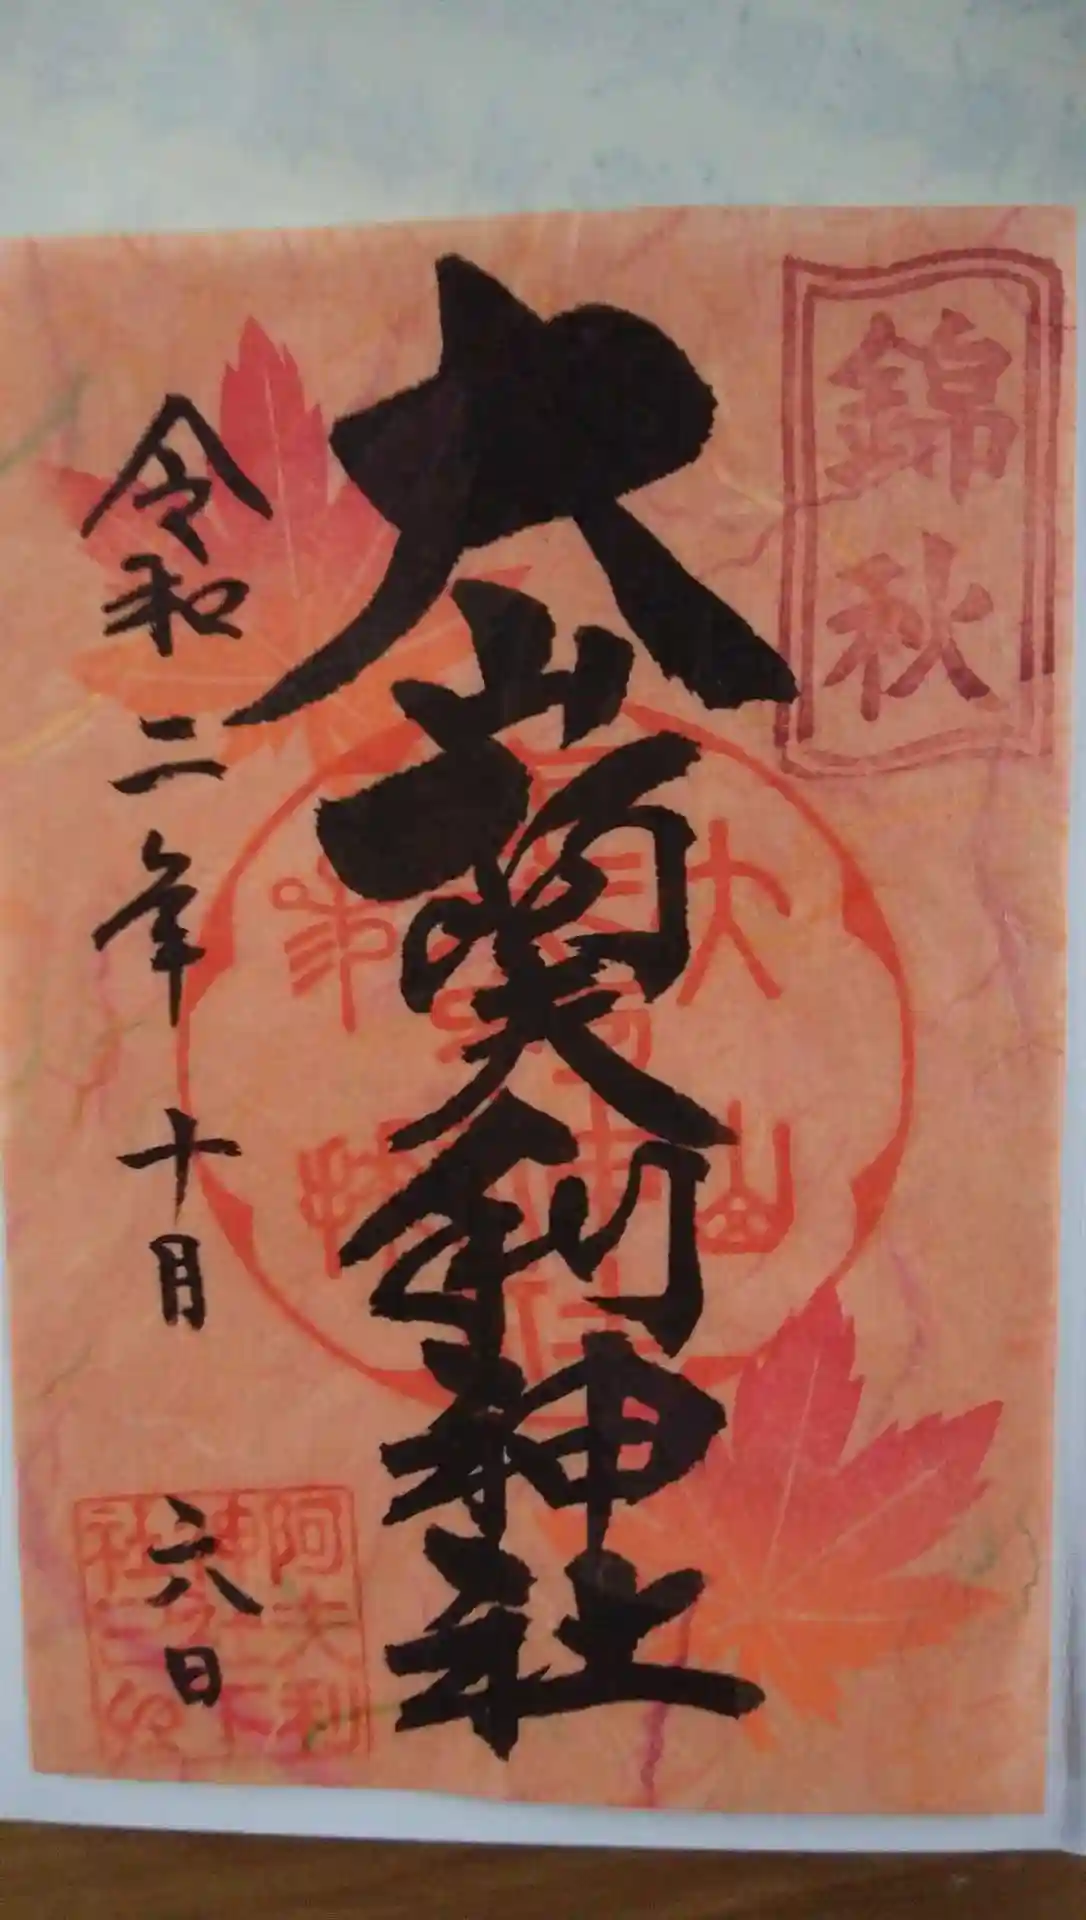 錦秋
大山阿夫利神社
令和二年十月六日
阿夫利
神社下
社之印